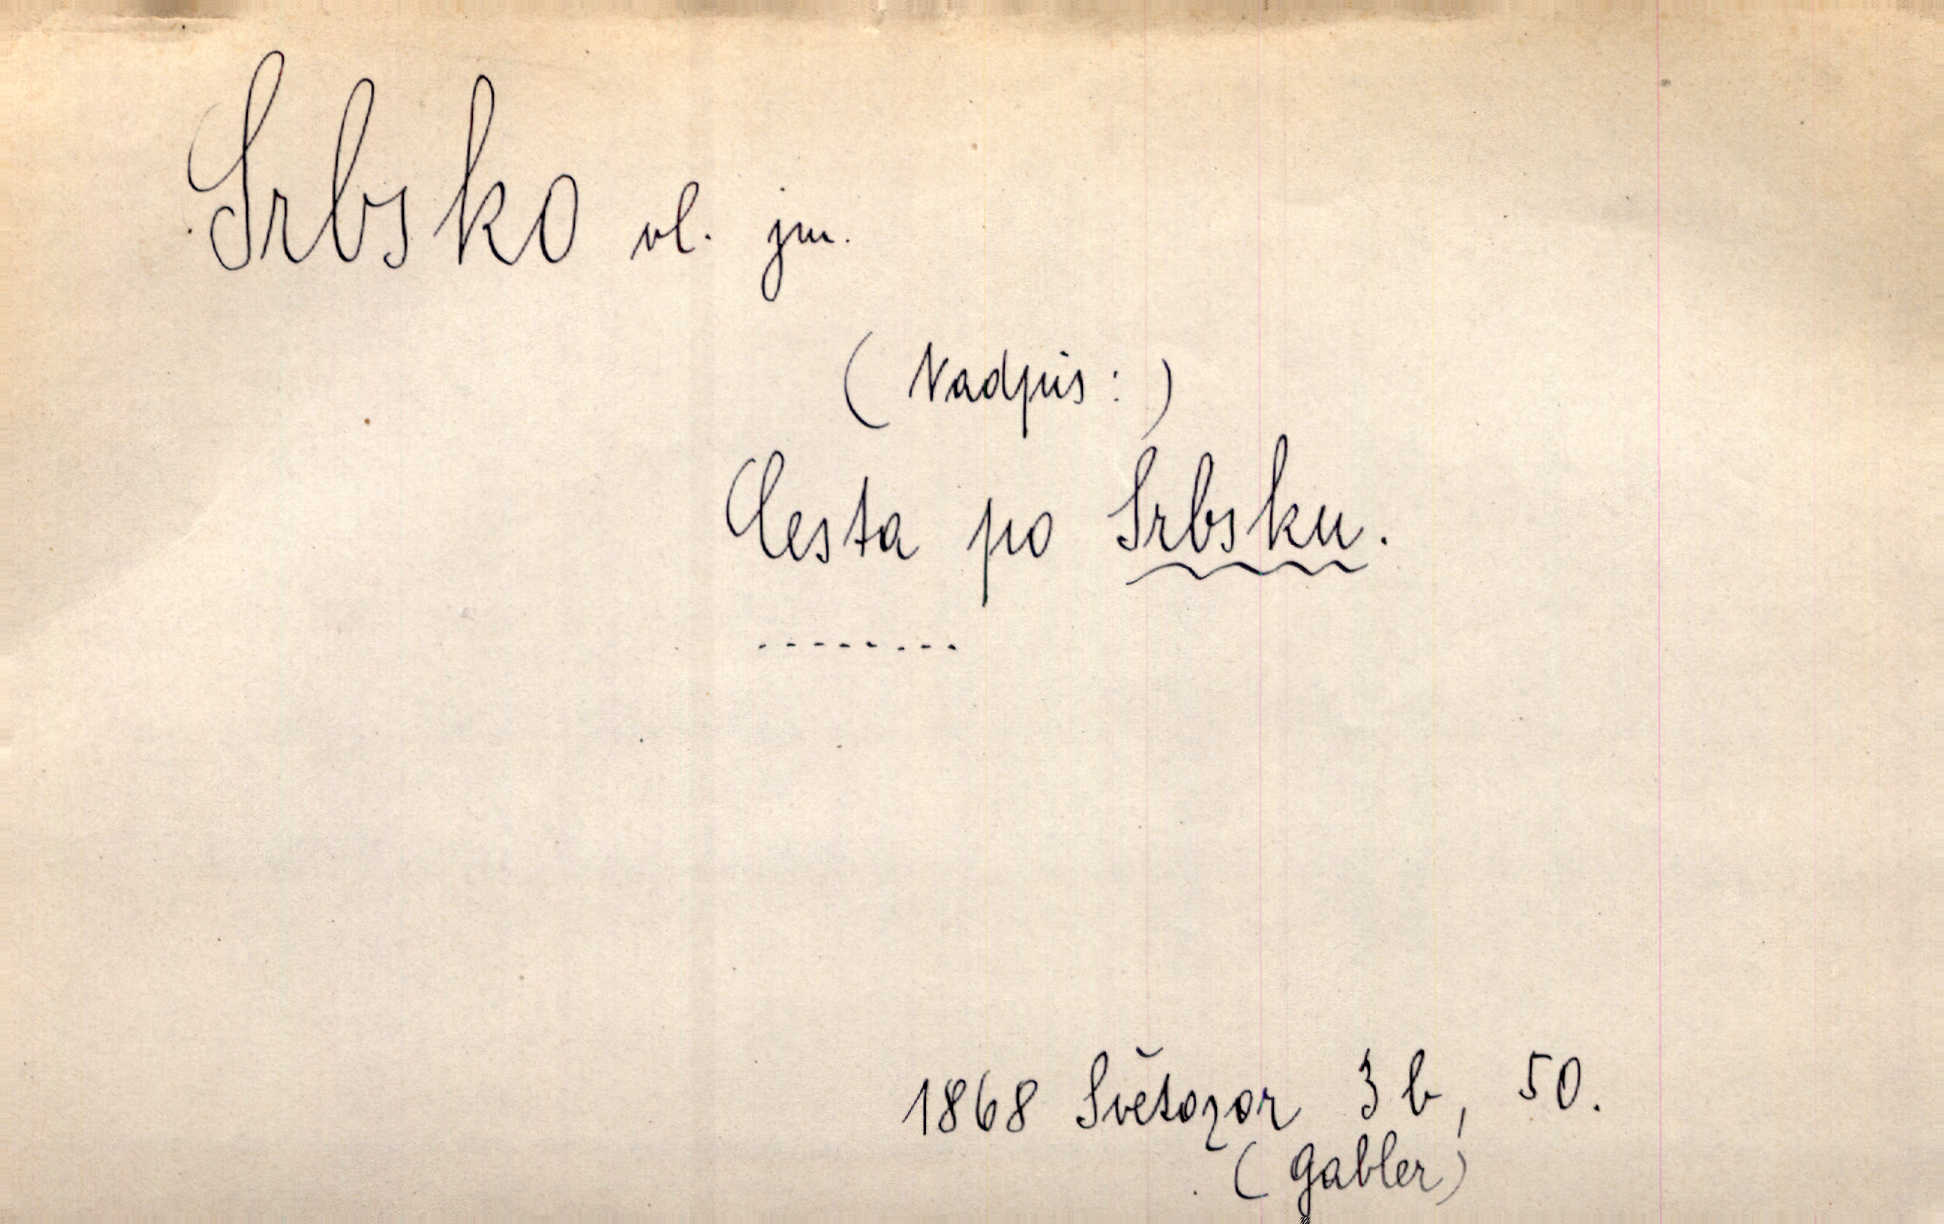 Srbsko vl. jm.
(Nadpis:)
Cesta po Srbsku.
........
1868 Světozor 3 b, 50.
(Gabler)